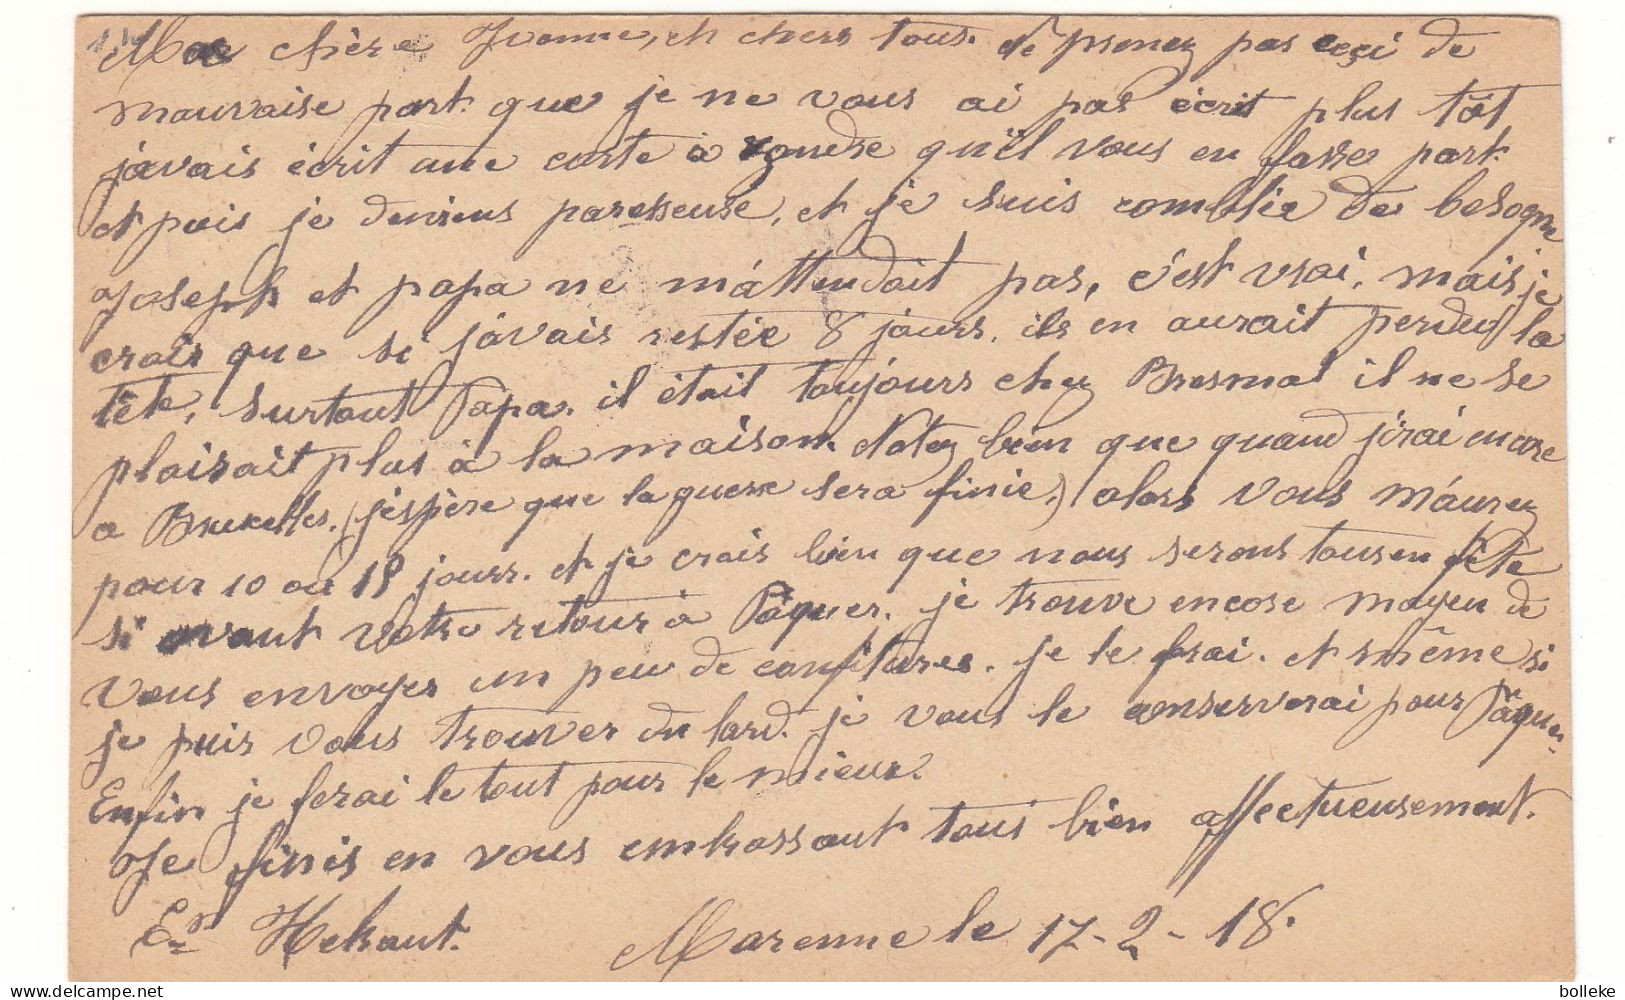 Ma chère Yvonne, et chers tous. Ne prenez pas ceçi de
mauvaise part. que je ne vous ai pas écrit plus tôt,
j'avais écrit une carte à qu'il vous en fasse part.
et puis je deviens paresseuse, et je suis comblée de besogne
Joseph et papa ne m'attendait pas, c'est vrai, mais je
crois que si j'avais restée 8 jours, ils en aurait perdu la
tête, surtout Papa. il était toujours chez Bresmal il ne se
plaisait plus à la maison. Notez bien que quand j'irai encore
a Bruxelles, (j'éspère que la guerre sera finie,) alors vous m'aurez
pour 10 ou 15 jours. et je crois bien que nous serons tous en fête
si avant votre retour à Pâques. je trouve encore moyen de
vous envoyer un peu de confitures. je le frai. et même si
je puis vous trouver du lard. je vous le conserverai pour Pâques.
Enfin je ferai le tout pour le mieux.
Je finis en vous embrassant tous bien affectueusement.
Er Hekaut. Marenne le 17-2-18.
bolleke